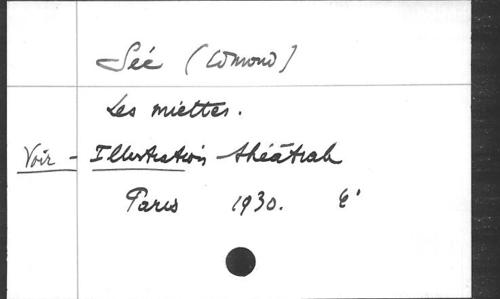 Sée (Edmond)
Les miettes.
Voir - Illustration théâtrale
Paris 1930. 4°